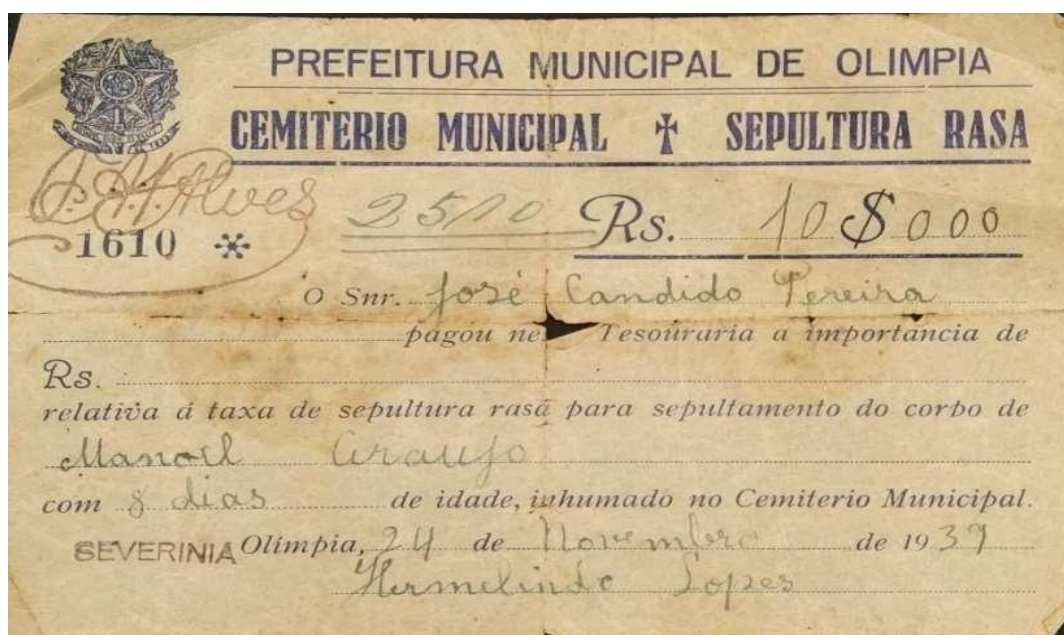 PREFEITURA MUNICIPAL DE OLIMPIA
CEMITERIO MUNICIPAL ✝ SEPULTURA RASA
P. A. Alves
2510 Rs. 10$000
1610 *
O Snr. José Candido Pereira
pagou ne Tesouraria a importancia de
Rs.
relativa á taxa de sepultura rasa para sepultamento do corpo de
Manoel Araujo
com 8 dias de idade, inhumado no Cemiterio Municipal.
SEVERINIA Olímpia, 24 de Novembro de 1939
Hermelindo Lopes